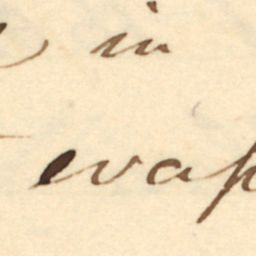 in
evap